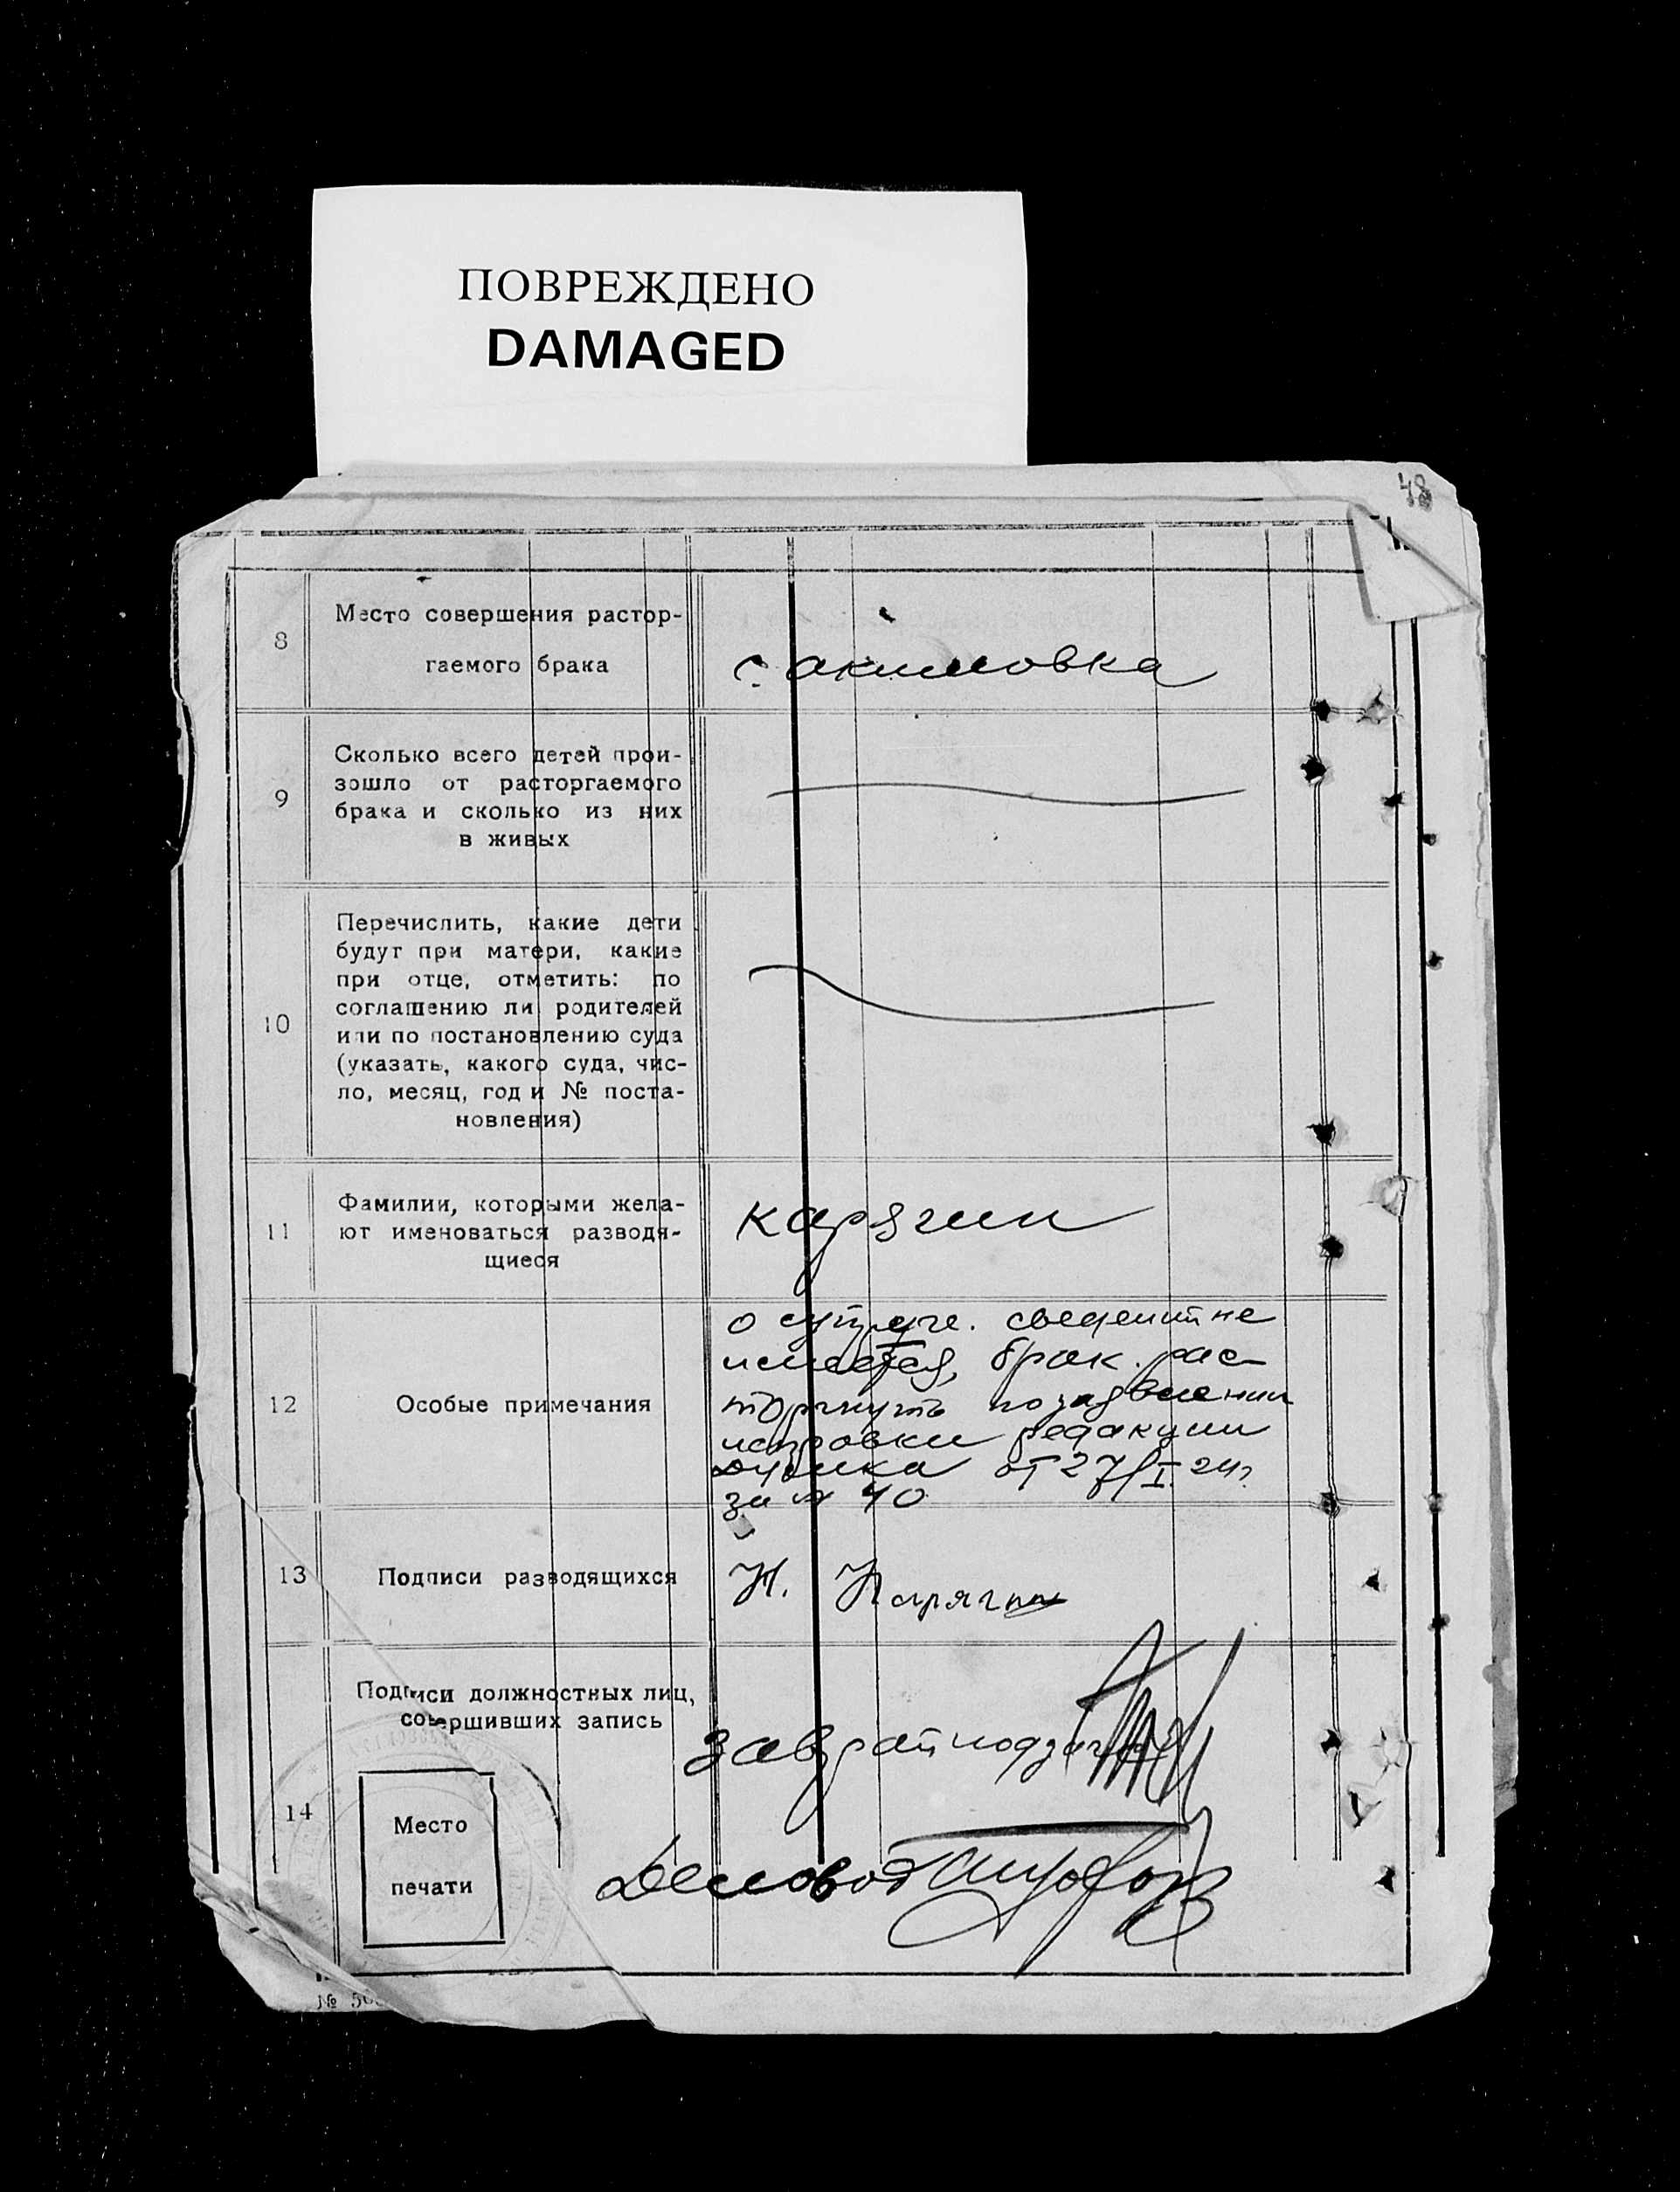 ПОВРЕЖДЕНО
DAMAGED
48
8
Место совершения растор-
гаемого брака
с. акимовка
9
Сколько всего детей прои-
зошло от расторгаемого
брака и сколько из них
в живых
10
Перечислить, какие дети
будут при матери, какие
при отце, отметить: по
соглашению ли родителей
или по постановлению суда
(указать, какого суда, чис-
ло, месяц, год и № поста-
новления)
11
Фамилии, которыми жела-
ют именоваться разводя-
щиеся
Карягин
12
Особые примечания
о супруге. сведений не
имеется, брак. рас-
торгнуть по заявлении
редакции
от 27/I 24г.
за № 40
13
Подписи разводящихся
Н. Карягин
Подписи должностных лиц,
совершивших запись
14
Место
печати
Заврайподзагс
Деловод
№ 56